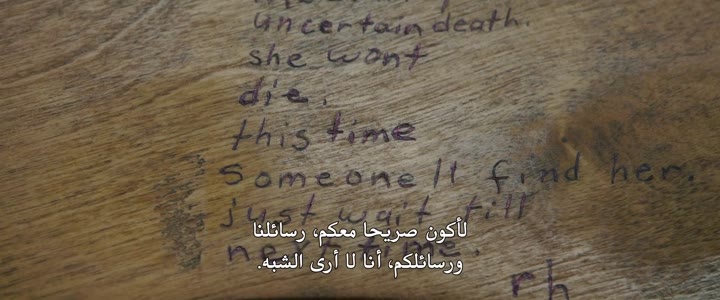 uncertain death.
she wont
die.
this time
Someone ll find her.
just wait till
next time.
rh
لأكون صريحا معكم، رسائلنا
ورسائلكم، أنا لا أرى الشبه.